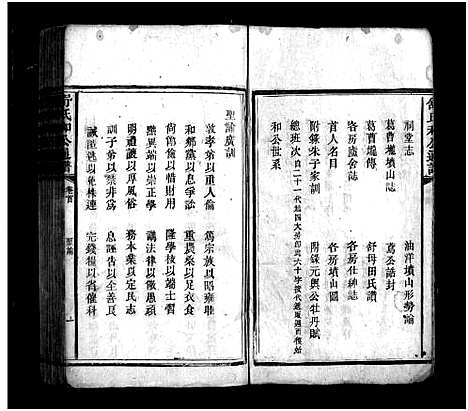 祠堂志
油洋墳山形勢論
葛曹壠墳山志
蔿公誥封
葛曹壠傳
舒母田氏讚
房族盦舍志
各房仕紳誌
首人名目
各房墳山圖
附錄朱子家訓
附錄元輿公牡丹賦
總班次自二十一代起四大房即武六十字按代遞嬗週而復始
和公世系
聖諭廣訓
敦孝弟以重人倫
篤宗族以昭雍睦
和鄉黨以息爭訟
重農桑以足衣食
尚節儉以惜財用
隆學校以端士習
黜異端以崇正學
講法律以儆愚頑
明禮讓以厚風俗
務本業以定民志
訓子弟以禁非為
息誣告以全善良
誡匿逃以免株連
完錢糧以省催科
舒氏和公通譜
卷首
聖諭
上